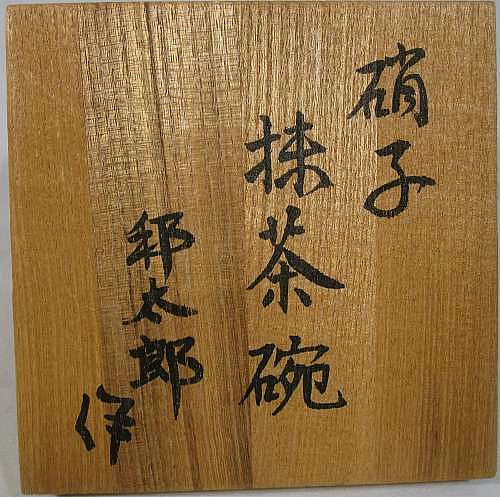 硝子
抹茶碗
邦太郎
作